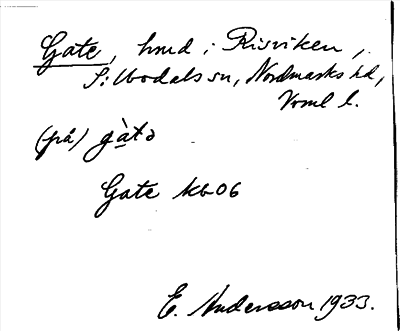 Gate, hmd i Risviken,
Silbodals sn, Nordmarks hd,
Vrml l.
(på) gàtə
Gate kb 06
E. Andersson 1933.